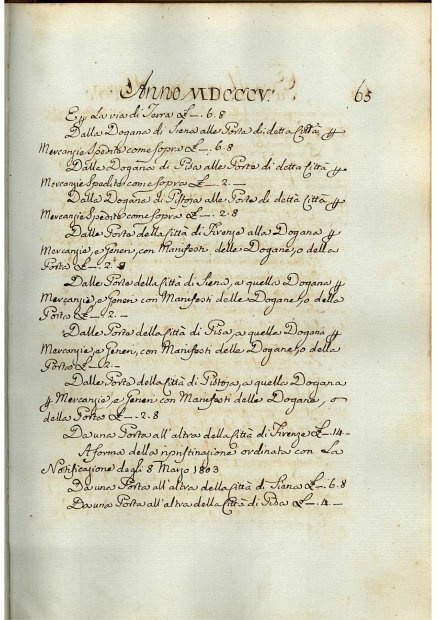 Anno MDCCCV. 65
E p La via di Terra £ -. 6. 8
Dalla Dogana di Siena alle Porte di detta Città p
Mercanzie Spedite come sopra £ -. 6. 8
Dalla Dogana di Pisa alle Porte di detta Città p
Mercanzie Spedite come sopra £ -. 2. -
Dalla Dogana di Pistoja alle Porte di detta Città p
Mercanzie Spedite come sopra £ -. 2. 8
Dalle Porte della Città di Firenze alla Dogana p
Mercanzie, e Generi, con Manifesti delle Dogane, o della
Porta £ -. 2. 8
Dalle Porte della Città di Siena, a quella Dogana p
Mercanzie, e Generi con Manifesti delle Dogane, o della
Porta £ -. 2. -
Dalle Porte della Città di Pisa, a quella Dogana p
Mercanzie, e Generi, con Manifesti delle Dogane, o della
Porta £ -. 2. -
Dalle Porte della Città di Pistoja, a quella Dogana
p Mercanzie, e Generi con Manifesti delle Dogane, o
della Porta £ -. 2. 8
Da una Porta all'altra della Città di Firenze £ -. 14.
A forma della ripristinazione ordinata con La
Notificazione degli 8 Marzo 1803
Da una Porta all'altra della Città di Siena £ -. 6. 8
Da una Porta all'altra della Città di Pisa £ -. 4. -